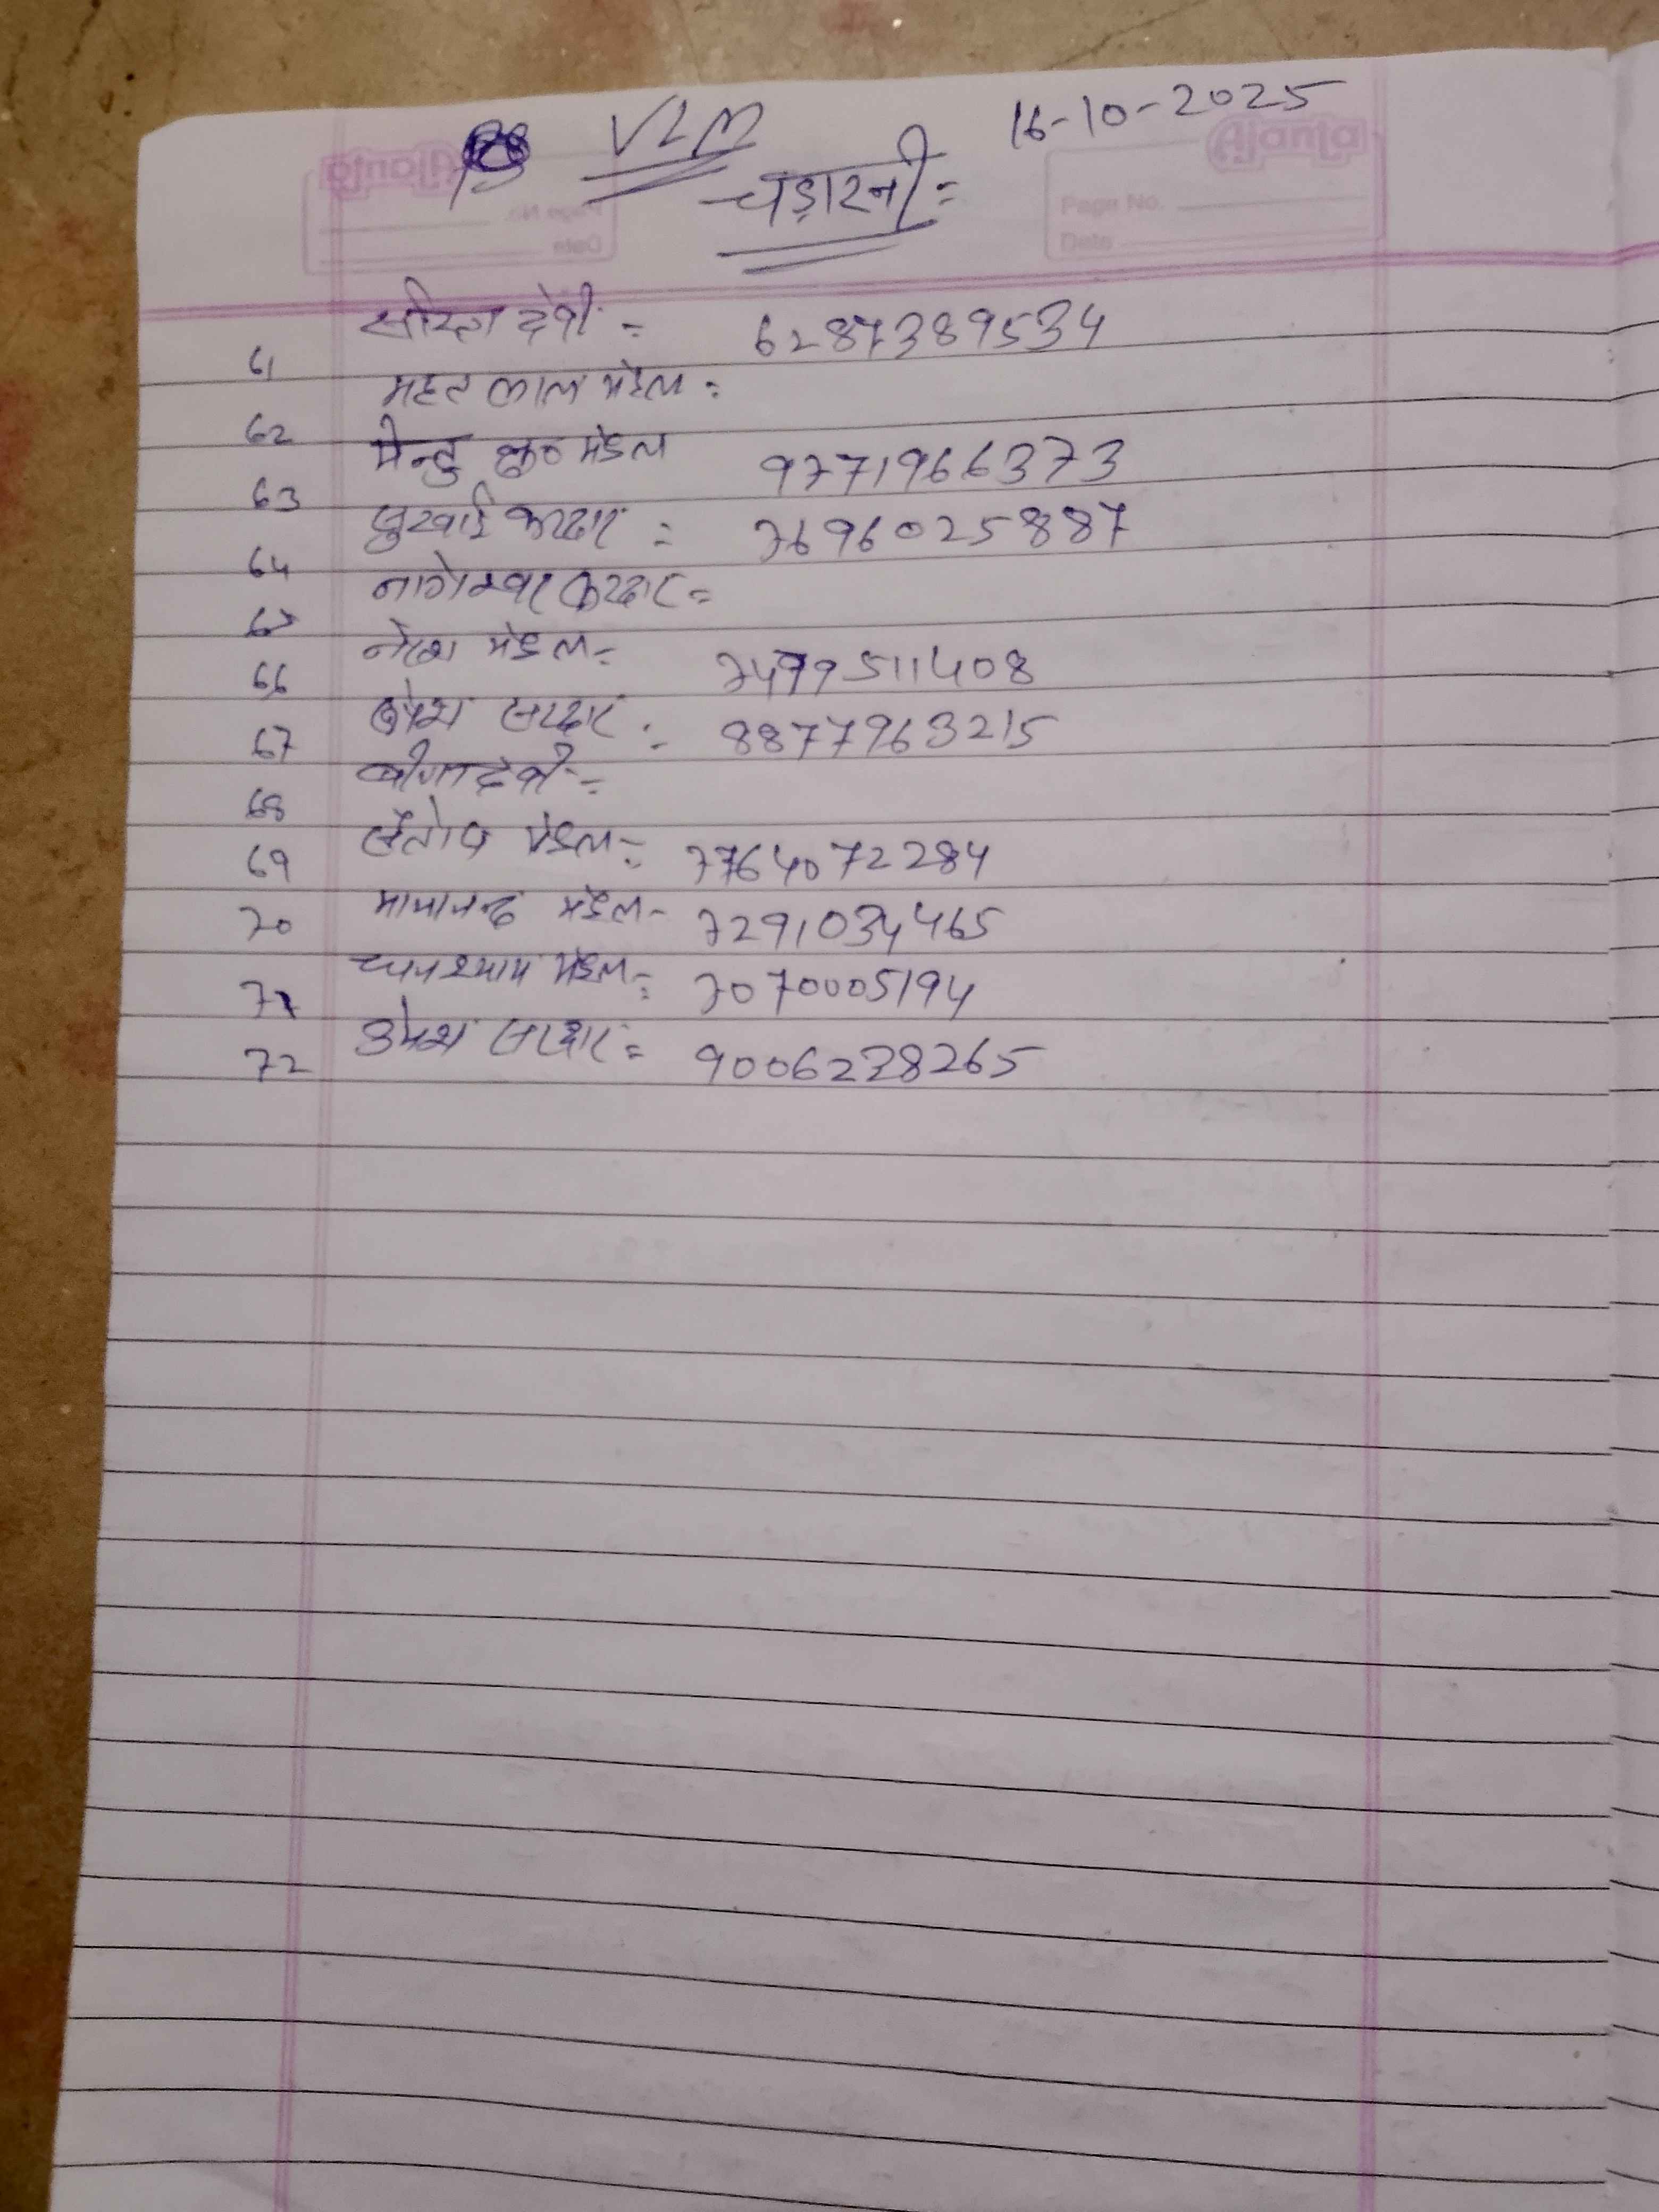 VLM
16-10-2025
Ajanta
Page No.
Date
चड़ारनी =
61 देवी = 6287389534
62 लाल मंडल =
63 मेन्टु मंडल 9771966373
64 = 7696025887
65 नागेश्वर =
66 नरेश मंडल = 7479511408
67 सरदार = 8877963215
68 देवी =
69 संतोष मंडल = 7764072284
70 मंडल - 7291034465
71 घनश्याम मंडल = 7070005194
72 उमेश सरदार = 9006238265